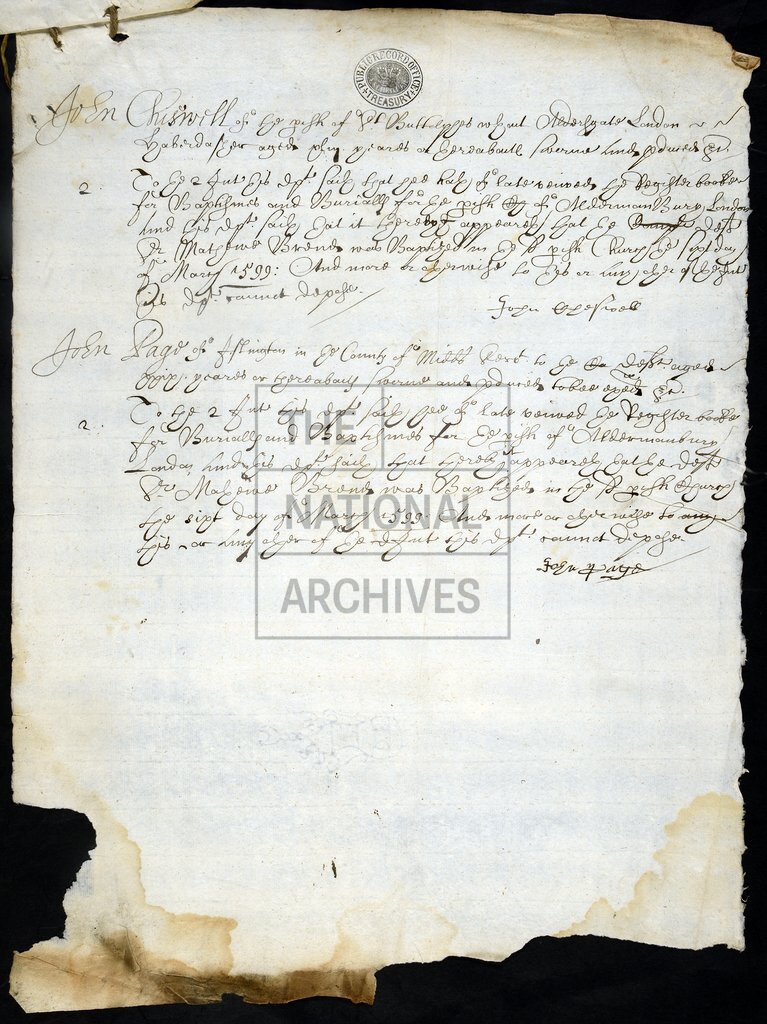 PUBLIC RECORD OFFICE
TREASURY
John Chiswell of the pish of St Buttolphes wthout Aldersgate London
Haberdasher aged yeares or thereabouts sworne and pduced &c.
2 To the 2 Int this dept saith that hee hath of late veiwed the Register booke
for Baptismes and Burialls for the pish of Aldermanbury London
And this dept saith that it thereby appeareth that the deft
Sr Mathewe Brend was Baptized in the sd pish Church the sixt day
of March 1599: And more or otherwise to this or any other of the Int
this dept cannot depose.
John Cheswell
John Page of Islington in the County of Midd to the deft aged
yeares or thereabouts sworne and pduced to bee exed &c.
2. To the 2 Int this dept saith hee of late veiwed the Register booke
for Burialls and Baptismes for the pish of Aldermanbury
London And this dept saith that thereby it appeareth that the deft
Sr Mathewe Brend was Baptized in the sd pish Church
the sixt day of March 1599. And more or otherwise to any
this or any other of the Int this dept cannot depose.
John Page
THE
NATIONAL
ARCHIVES